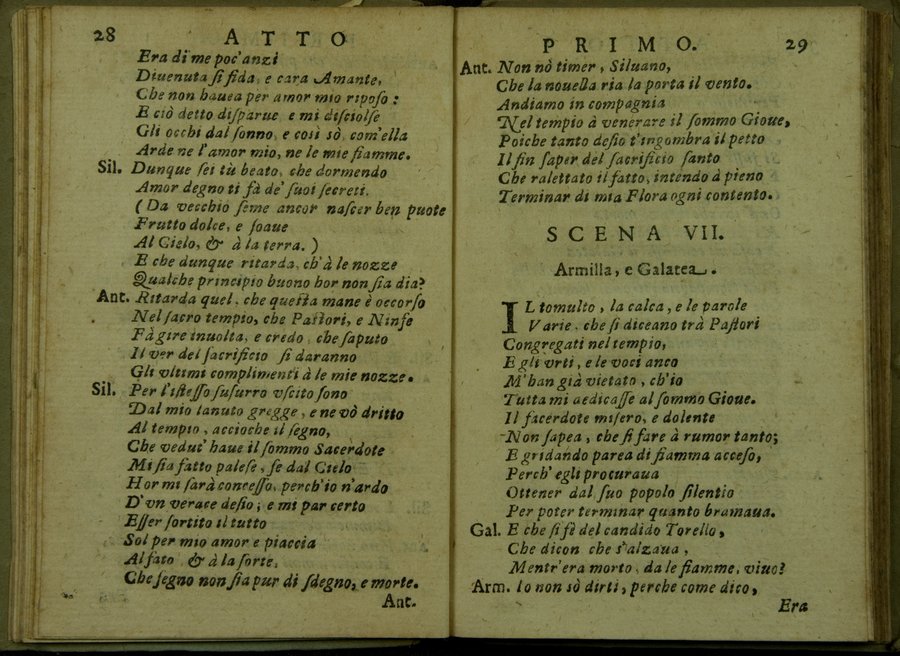 28 ATTO
Era di me poc' anzi
Diuenuta sì fida, e cara Amante,
Che non hauea per amor mio riposo:
E ciò detto disparue, e mi disciolse
Gli occhi dal sonno, e così sò, com'ella
Arde ne l'amor mio, ne le mie fiamme.
Sil. Dunque sei tù beato, che dormendo
Amor degno ti fà de' suoi secreti.
(Da vecchio seme ancor nascer ben puote
Frutto dolce, e soaue
Al Cielo, & à la terra.)
E che dunque ritarda, ch'à le nozze
Qualche principio buono hor non si a dia?
Ant. Ritarda quel, che questa mane è occorso
Nel sacro tempio, che Pastori, e Ninfe
Fà gire inuolta, e credo, che saputo
Il ver del sacrificio si daranno
Gli vltimi complimenti à le mie nozze.
Sil. Per l'istesso susurro vscito sono
Dal mio lanuto gregge, e ne vò dritto
Al tempio, accioche il segno,
Che vedut' haue il sommo Sacerdote
Mi sia fatto palese, se dal Cielo
Hor mi sarà concesso, perch'io n'ardo
D'vn verace desio; e mi par certo
Esser sortito il tutto
Sol per mio amor e piaccia
Al fato, & à la sorte,
Che segno non sia pur di sdegno, e morte.
Ant.
PRIMO. 29
Ant. Non nò timer, Siluano,
Che la nouella ria la porta il vento.
Andiamo in compagnia
Nel tempio à venerare il sommo Gioue,
Poiche tanto desio t'ingombra il petto
Il fin saper del sacrificio santo
Che ralettato il fatto, intendo à pieno
Terminar di mia Flora ogni contento.
SCENA VII.
Armilla, e Galatea.
IL tomulto, la calca, e le parole
Varie, che si diceano trà Pastori
Congregati nel tempio,
E gli vrti, e le voci anco
M'han già vietato, ch'io
Tutta mi dedicasse al sommo Gioue.
Il sacerdote misero, e dolente
Non sapea, che si fare à rumor tanto;
E gridando parea di fiamma acceso,
Perch' egli procuraua
Ottener dal suo popolo silentio
Per poter terminar quanto bramaua.
Gal. E che si fè del candido Torello,
Che dicon che s'alzaua,
Mentr'era morto, da le fiamme, viuo?
Arm. Io non sò dirti, perche come dico,
Era